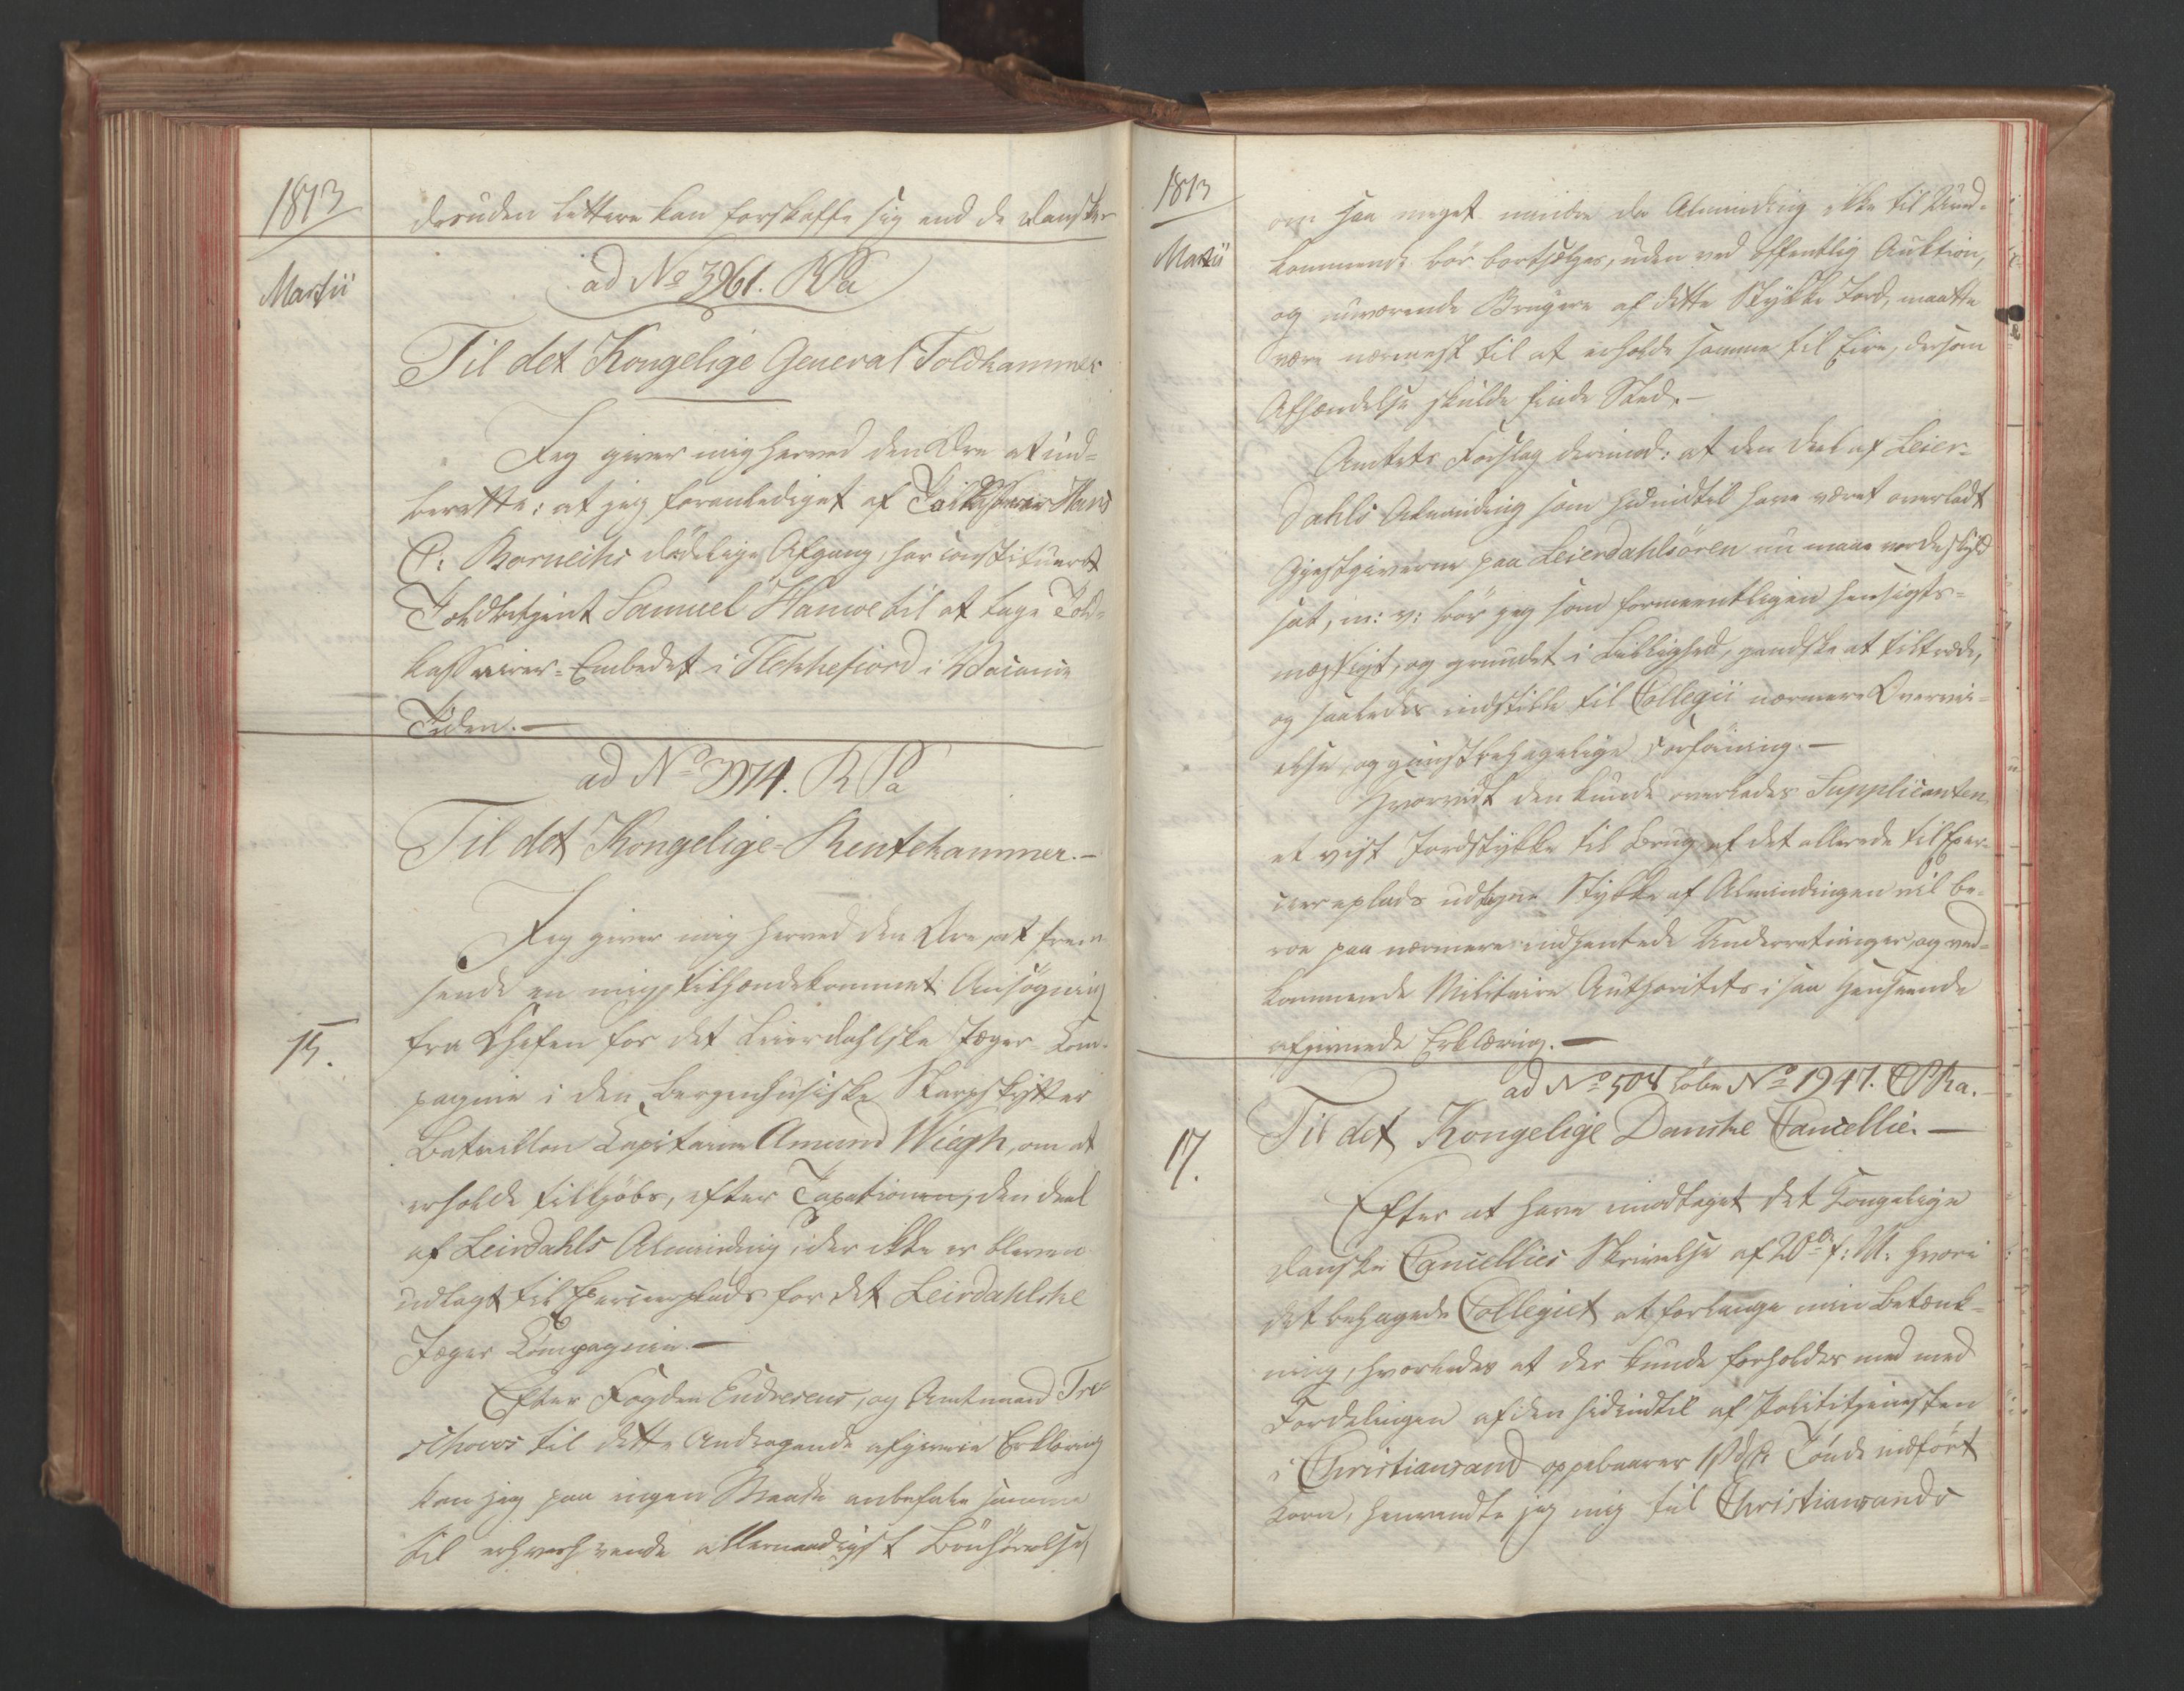 1813
desuden lettere kan forskaffe sig end de Danske
Martii
ad No 3961. RPa
Til det Kongelige General Toldkammer
Jeg giver mig herved den Ære at ind-
berette: at jeg foranlediget af Toldkasserer Hans
P: Borneihs dödelige Afgang, har constitueret
Toldbetjent Samuel Hanwe til at tage Told-
kasserer-Embedet i Flekkefiord i Vacance
Tiden.-
ad No 3974. RPa
Til det Kongelige Rentekammer.-
Jeg giver mig herved den Ære, at frem-
sende en mig tilhændekommet Ansögning
15.
fra Chefen for det Leirdahlske Jæger Com-
pagnie i den Bergenhusiske Skarpskytter
Bataillon Capitaine Amund Wiegh, om at
erholde tilkjöbs, efter Taxationen, den deel
af Leirdahls Alminding, der ikke er bleven
udlagt til Exerceerplads for det Leirdahlske
Jæger Compagnie.-
Efter Fogden Endresens, og Amtmand Tre-
schows til dette Andragende afgivne Erklæring
kan jeg paa ingen Maade anbefale samme
til erhvervende allernaadigst Bönhörelse,
1813
om saa meget mindre da Alminding ikke til Ved-
Martii
kommende bör bortsælges, uden ved offentlig Auktion,
og nuværende Brugere af dette Stykke Jord, maatte
være nærmest til at erholde samme til Eie, dersom
Afhændelse skulde finde Sted.-
Amtets Forslag derimod: at den deel af Leier-
dahls Alminding som hidindtil have været overladt
Gjestgiverne paa Leierdahlsören nu maae vorde skyld
sat, m: v: bör jeg som formeentligen hensigts-
mæssigt, og grundet i Billighed, gandske at tiltræde,
og saaledes indstille til Collegii nærmere Overvei-
else, og gunstbehagelige Forföining.-
Hvorvidt den kunde overlades Supplicanten
et vist Jordstykke til Brug af det allerede til Exer-
ceerplads udseete Stykke af Almindingen vil be-
roe paa nærmere indhentede Underretninger, og ved-
kommende Militaire Authoritets i saa Henseende
afgivende Erklæring.-
ad No 508 löbe No 1947. CPRa.
Til det Kongelige Danske Cancellie.-
17.
Efter at have modtaget det Kongelige
danske Cancellies Skrivelse af 20de f: M: hvori
det behagede Collegiet at forlange min Betænk-
ning, hvorledes at der kunde forholdes med med
Fordelingen af den hidindtil af Politibetjenten
i Christiansand oppebaarne 1 s pr. Tönde indfört
Korn, henvendte jeg mig til Christiansands